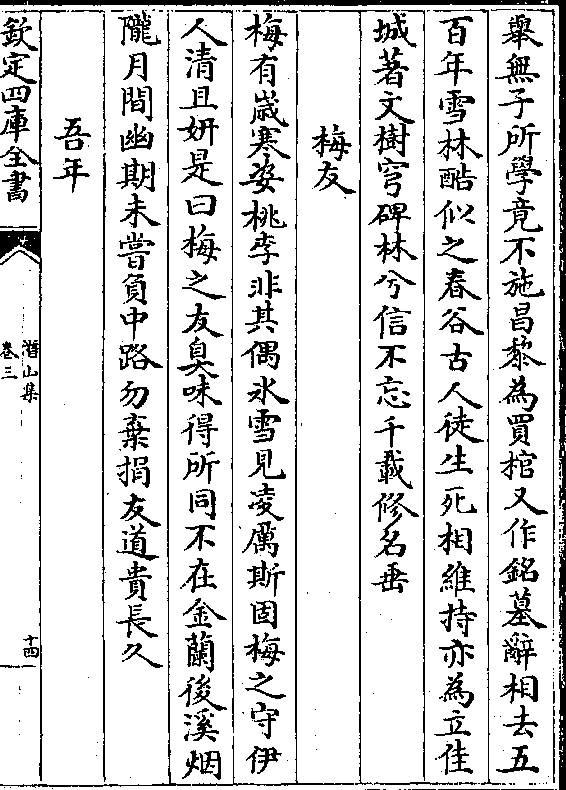 舉無子所學竟不施昌黎為買棺又作銘墓辭相去五
百年雪林酷似之春谷古人徒生死相維持亦為立佳
城著文樹穹碑林兮信不忘千載修名垂
梅友
梅有歳寒姿桃李非其偶氷雪見凌厲斯固梅之守伊
人清且妍是曰梅之友臭味得所同不在金蘭後溪烟
隴月間幽期未嘗負中路勿棄捐友道貴長久
吾年
欽定四庫全書
潛山集
卷三
十四